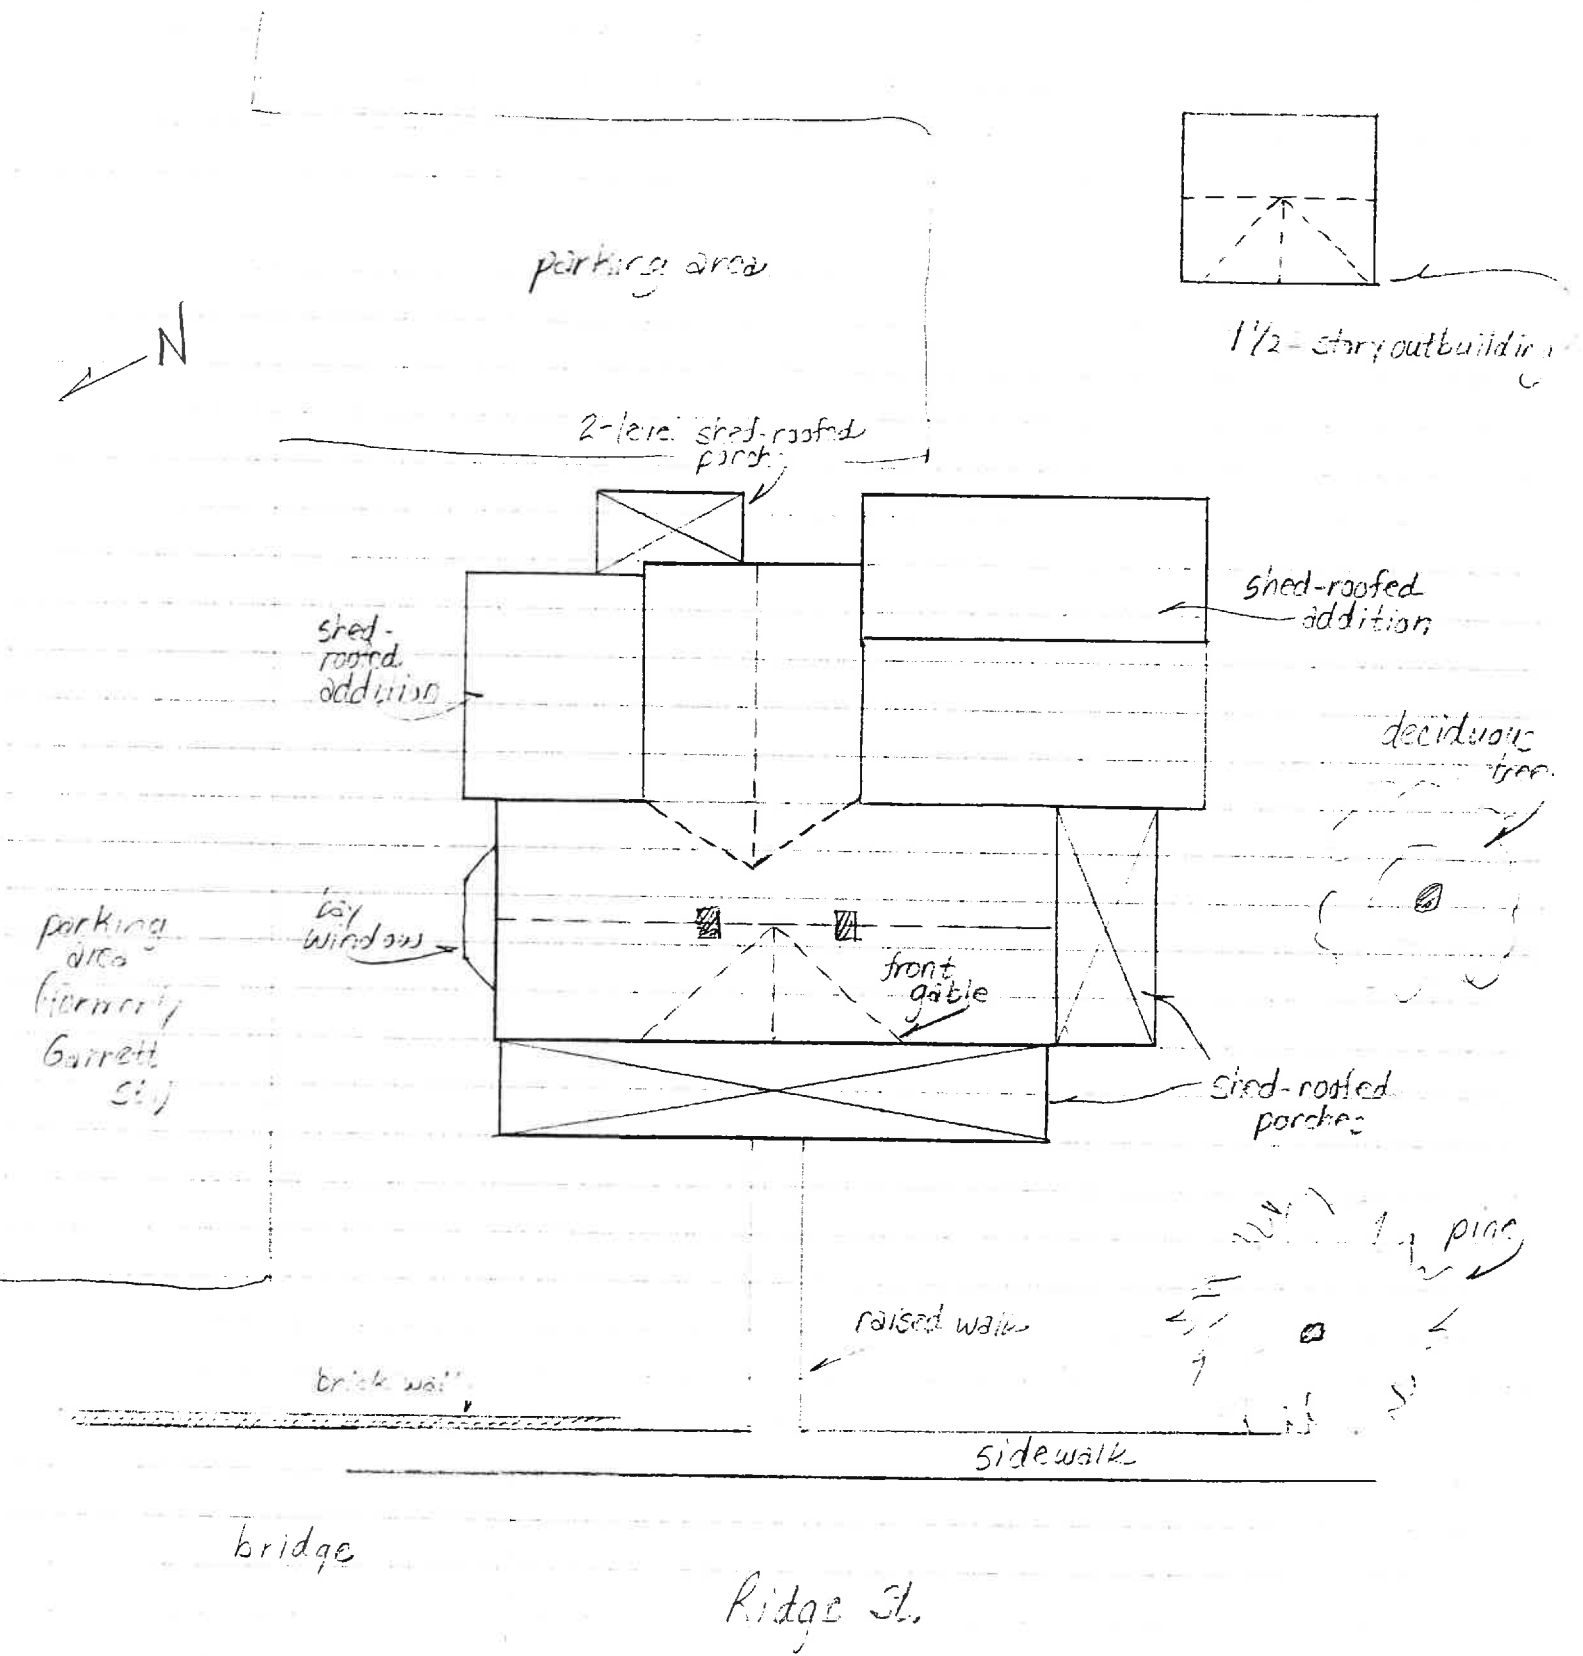 parking area
N
1 1/2-story outbuilding
2-level shed-roofed
porch
shed-roofed
addition
shed-
roofed
addition
deciduous
tree
parking
area
(formerly
Garrett
St.)
bay
window
front
gable
shed-roofed
porches
pine
raised walk
brick wall
sidewalk
bridge
Ridge St.